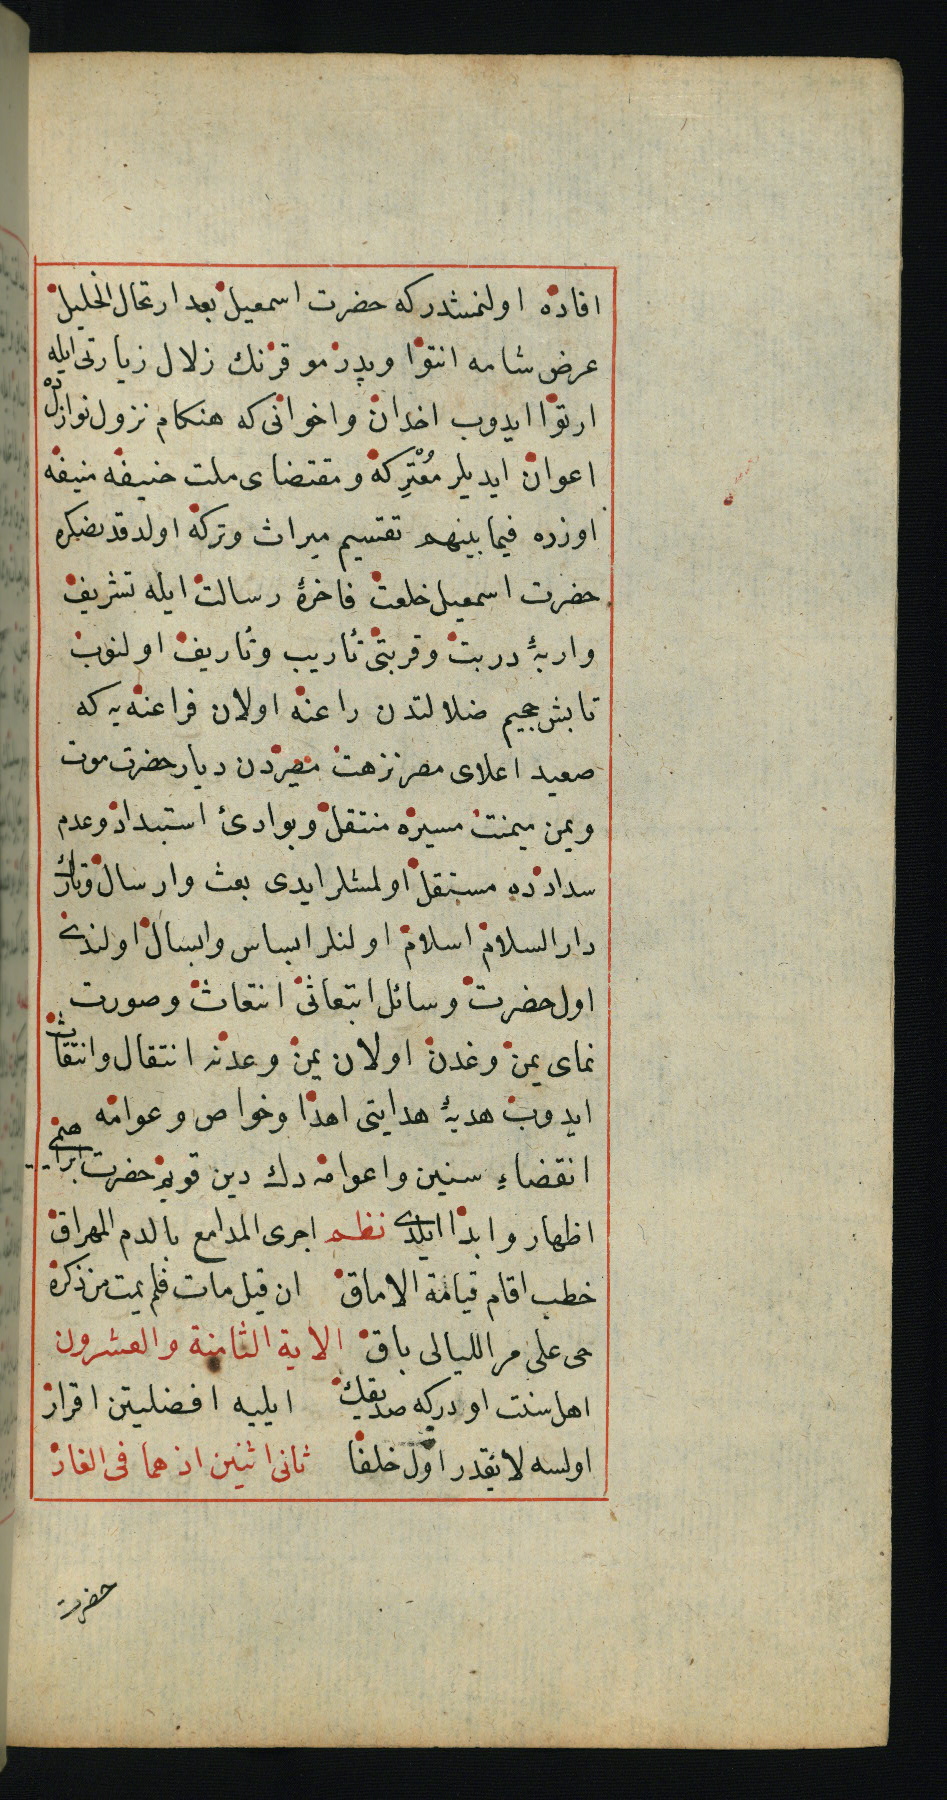 افاده اولنمشدر كه حضرت اسمعيل بعد ارتحال الخليل
عرض شامه انتوا وپدر موقرنك زلال زيارتى ايله
ارتوا ايدوب اخدان واخوانى كه هنكام نزول نوازلده
اعوان ايديلر مُعْتَرِكه ومقتضاى ملت حنيفه منيفه
اوزره فيما بينهم تقسيم ميراث وتركه اولدقدنصكره
حضرت اسمعيل خلعت فاخرۀ رسالت ايله تشريف
واربۀ دربت وقربتى تأريب وتأريف اولنوب
تابش جحيم ضلالتدن راعنه اولان فراعنه يه كه
صعيد اعلاى مصر نزهت مصيردن ديار حضرت موت
ويمن ميمنت مسيره منتقل وبوادئ استبداد وعدم
سدادده مستقل اولمشلر ايدى بعث وارسال وتارك
دار السلام اسلام اولنلر ابساس وابسال اولندى
اول حضرت وسائل ابتعاثى انتعاث وصورت
نماى يمن وغدن اولان يمن وعدنه انتقال وانتقاث
ايدوب هديۀ هدايتى اهدا وخواص وعوامه
انقضاءِ سنين واعوامه دك دين قويم حضرت ابراهيمى
اظهار وابدا ايلدى نظم اجرى المدامع بالدم المهراق
خطب اقام قيامة الاماق ان قيل مات فلم يمت من ذكره
حى على مر الليالى باق الاية الثامنة والعشرون
اهل سنت اودركه صديقك ايليه افضليتن اقرار
اولسه لايقدر اول خلفا ثانى اثنين اذ هما فى الغار
حضرت